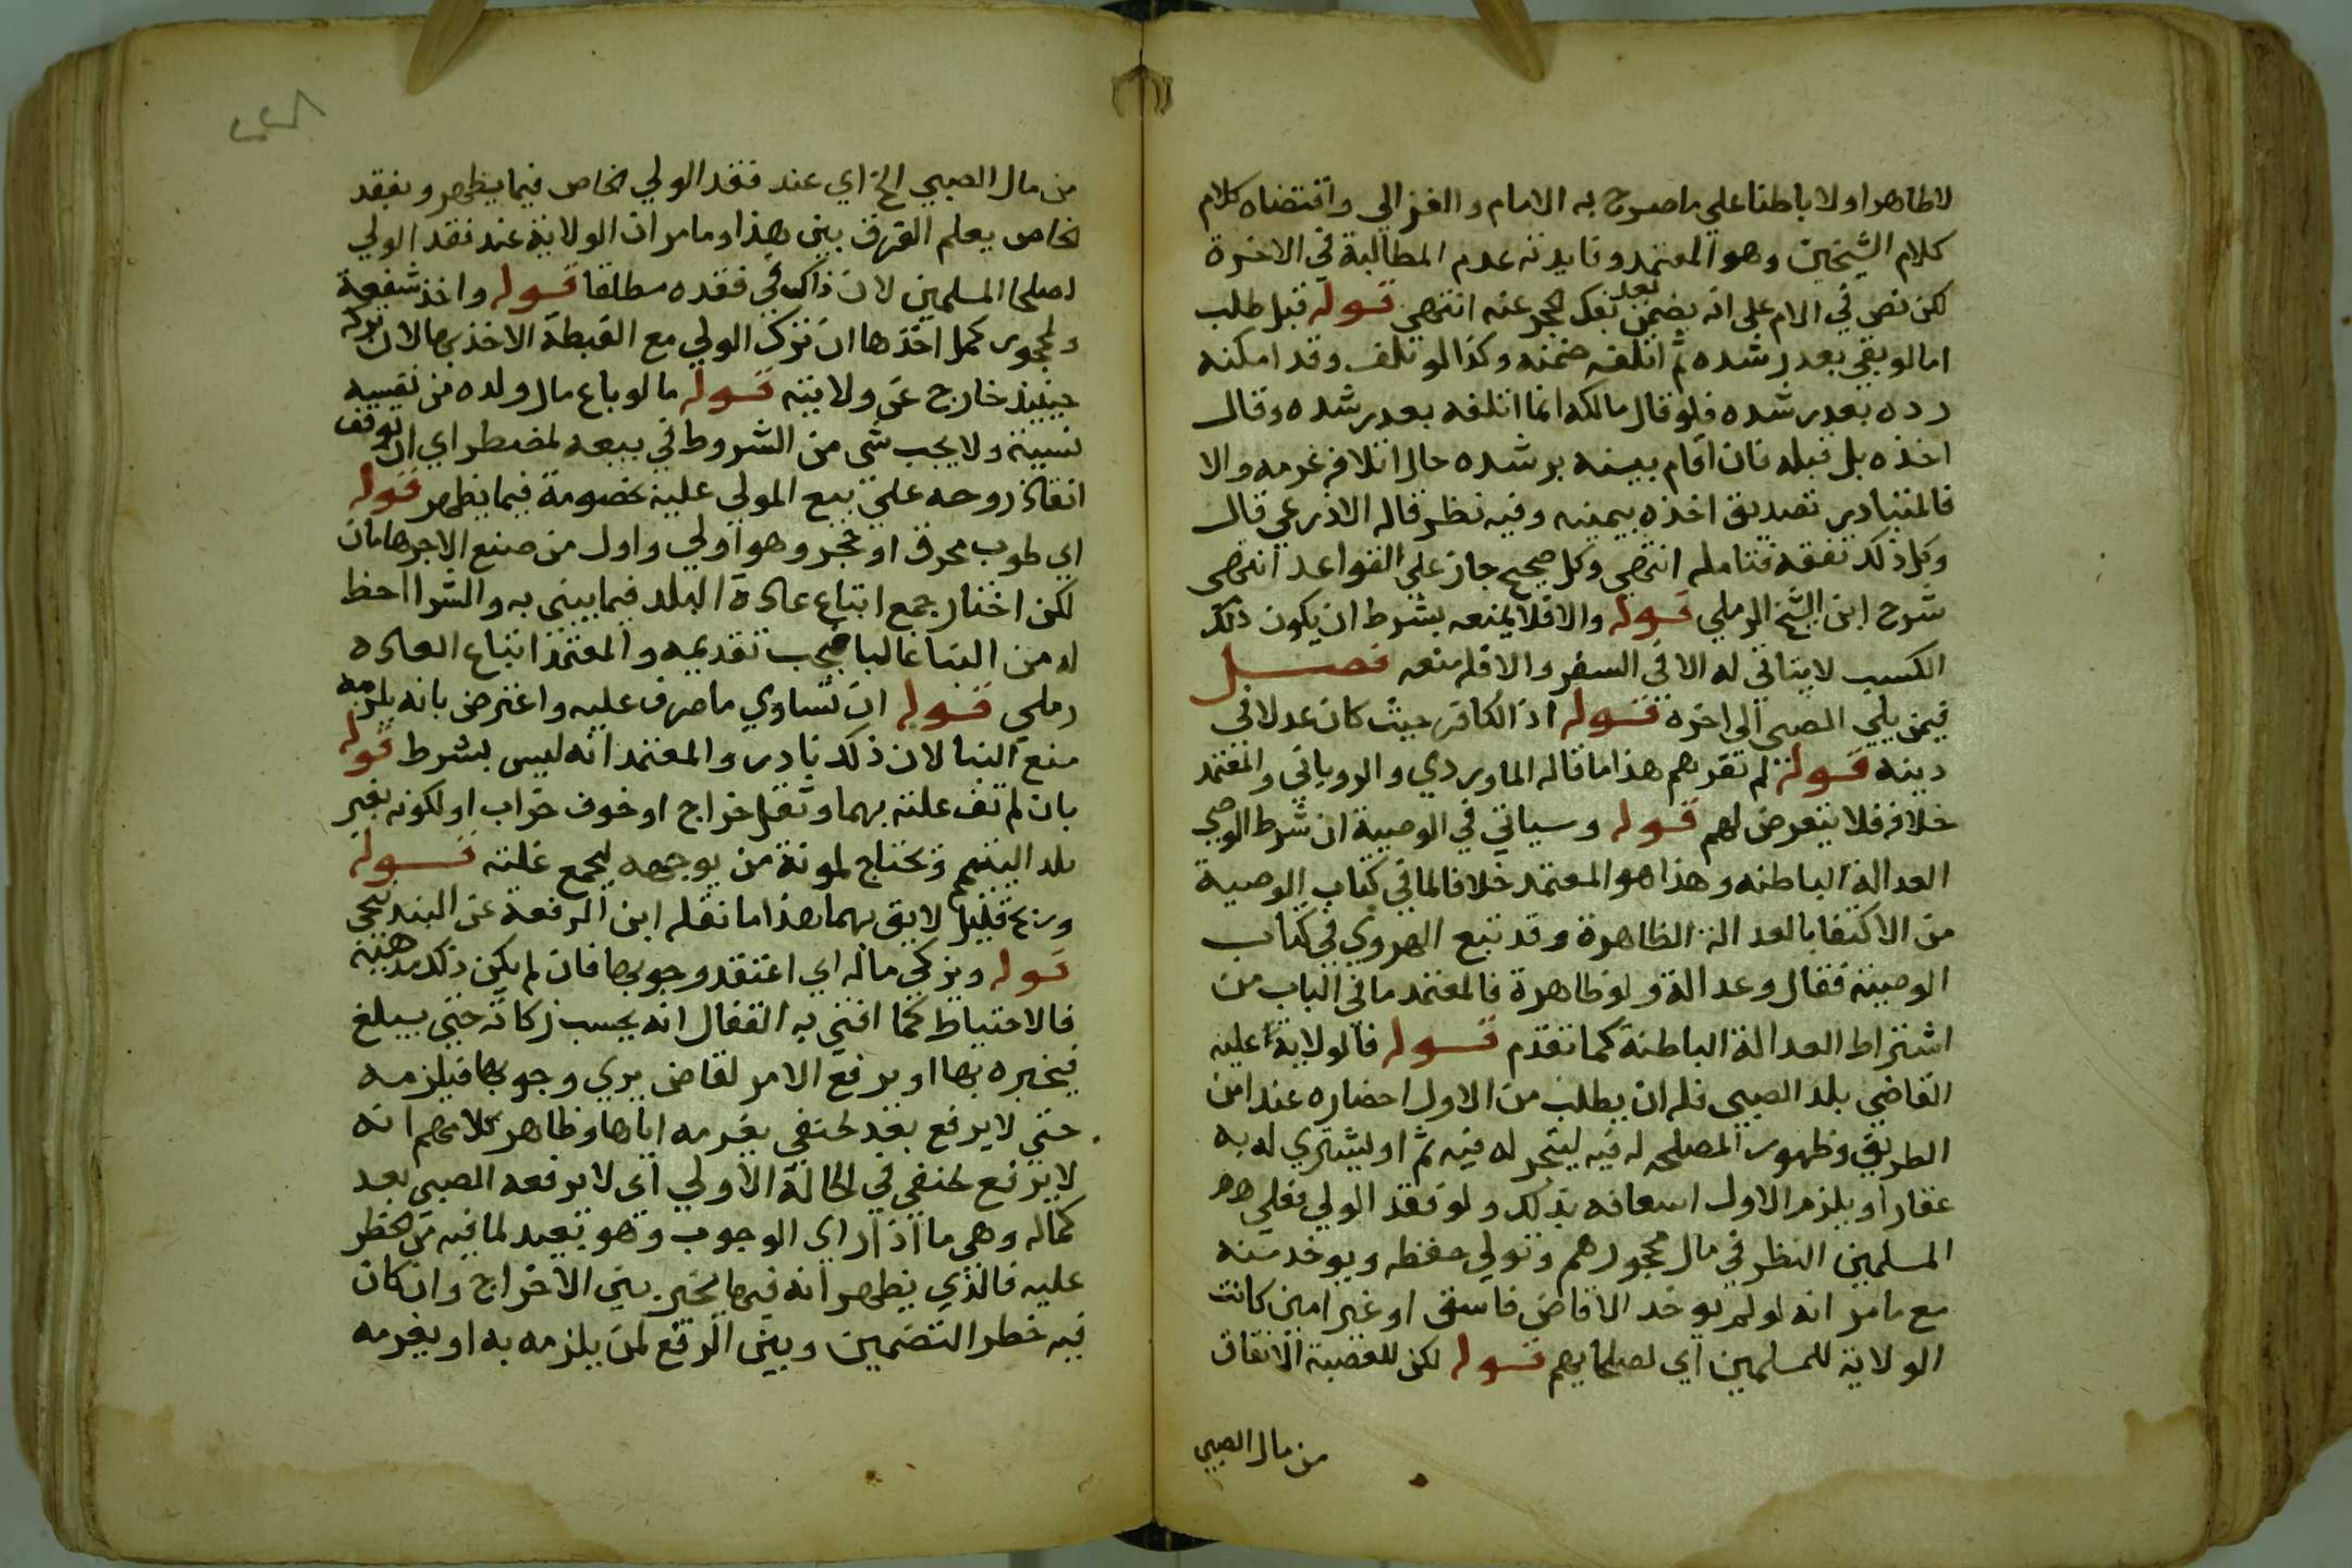 لا ظاهرا ولا باطنا علي ما صرح به الامام والغزالي واقتضاه كلام
كلام الشيخين وهو المعتمد وفايدته عدم المطالبة في الاخرة
لكن نص في الام على انه يضمن بعد فك الحجر عنه انتهي قوله قبل طلب
اما لو بقي بعد رشده ثم اتلفه ضمنه وكذا لو تلف وقد امكنه
رده بعد رشده فلو قال مالكه انما اتلفه بعد رشده وقال
اخذه بل قبله فان اقام بينة برشده حال اتلافه غرمه والا
فالمتبادر تصديق اخذه بيمينه وفيه نظر قاله الاذرعي قال
وكل ذلك تفقه فتامله انتهي وكل صحيح جاز علي القواعد انتهى
شرح ابن الشيخ الرملي قوله والا فلا يمنعه بشرط ان يكون ذلك
الكسب لا يتاتي له الا في السفر والا فله منعه فصل
فيمن يلي الصبي الى اخره قوله اذ الكافر حيث كان عدلا في
دينه قوله لم نقرهم هذا ما قاله الماوردي والروياني والمعتمد
خلافه فلا نتعرض لهم قوله وسياتي في الوصية ان شرط الوصي
العدالة الباطنه وهذا هو المعتمد خلافا لما في كتاب الوصية
من الاكتفا بالعدالة الظاهرة وقد تبع الهروي في كتاب
الوصية فقال وعدالة ولو ظاهرة فالمعتمد ما في الباب من
اشتراط العدالة الباطنة كما تقدم قوله فالولاية عليه
القاضي بلد الصبي فله ان يطلب من الاول احضاره عند امن
الطريق وظهور المصلحه له فيه ليتجر له فيه ثم او ليشتري له به
عقارا ويلزم الاول اسعافه بذلك ولو فقد الولي فعلي
المسلمين النظر في مال محجورهم وتولي حفظه ويوخذ منه
مع مامر انه لو لم يوخد الا قاض فاسق او غير امين كانت
الولاية للمسلمين اي لصلحايهم قوله لكن للعصبة الانفاق
من مال الصبي
من مال الصبي الخ اي عند فقد الولي الخاص فيما يظهر وبفقد
الخاص يعلم الفرق بين هذا ومامر ان الولاية عند فقد الولي
لصلحا المسلمين لان ذاك في فقده مطلقا قوله واخذ شفعة
ولمحجور كمل اخذها ان ترك الولي مع الغبطة الاخذ بها لان تركه
حينيذ خارج عن ولايته قوله ما لو باع مال ولده من نفسه
نسيية ولا يجب شي من الشروط في بيعه لمضطر اي ان توقف
انقاذ روحه علي بيع المولي عليه بخصومة فيما يظهر قوله
اي طوب محرق او حجر وهو اولي واول من صنع الاجر هامان
لكن اختار جمع اتباع عادة البلد فيما يبني به والشرا احظ
له من البنا غالبا فيجب تقديمه والمعتمد اتباع العاده
رملي قوله ان تساوي ما صرف عليه واعترض بانه يلزمه
منع البنا لان ذلك نادر والمعتمد انه ليس بشرط قوله
بان لم تف غلته بهما وثقل خراج او خوف خراب او لكونه بغير
بلد اليتيم ويحتاج لمونة من يوجهه ليجمع غلته قوله
وربح قليل لايق بهما هذا ما نقله ابن الرفعة عن البندنيجي
قوله ويزكي ماله اي اعتقد وجوبها فان لم يكن ذلك مذهبه
فالاحتياط كما افتي به القفال انه يحسب زكاته حتي يبلغ
فيخبره بها او يرفع الامر لقاض يري وجوبها فيلزمه
حتي لا يرفع بعد لحنفي يغرمه اياها وظاهر كلامهم انه
لا يرفع لحنفي في الحالة الاولي اي لا يرفعه الصبي بعد
كماله وهي ما اذا راي الوجوب وهو بعيد لما فيه من الخطر
عليه فالذي يظهر انه فيها يخير بين الاخراج وان كان
فيه خطر التضمين وبين الرفع لمن يلزمه به او يغرمه